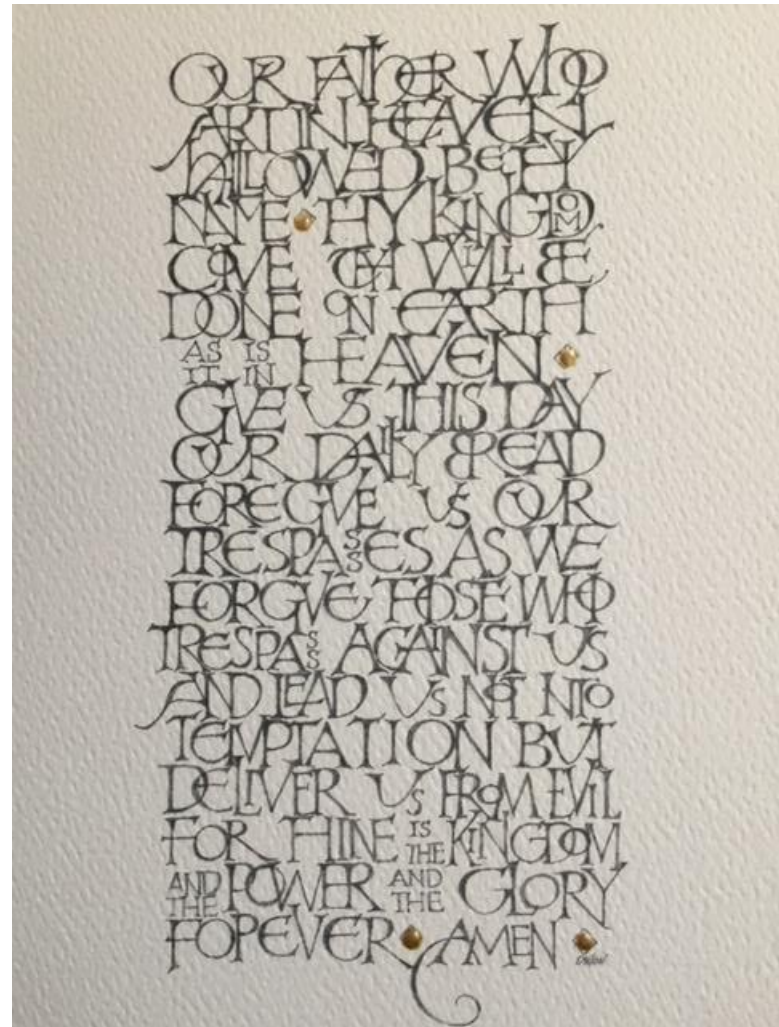 OUR FATHER WHO
ART IN HEAVEN
HALLOWED BE THY
NAME THY KINGDOM
COME THY WILL BE
DONE ON EARTH
AS IT IS IN HEAVEN
GIVE US THIS DAY
OUR DAILY BREAD
FOREGIVE US OUR
TRESPASSES AS WE
FORGIVE THOSE WHO
TRESPASS AGAINST US
AND LEAD US NOT INTO
TEMPTATION BUT
DELIVER US FROM EVIL
FOR THINE IS THE KINGDOM
AND THE POWER AND THE GLORY
FOREVER AMEN